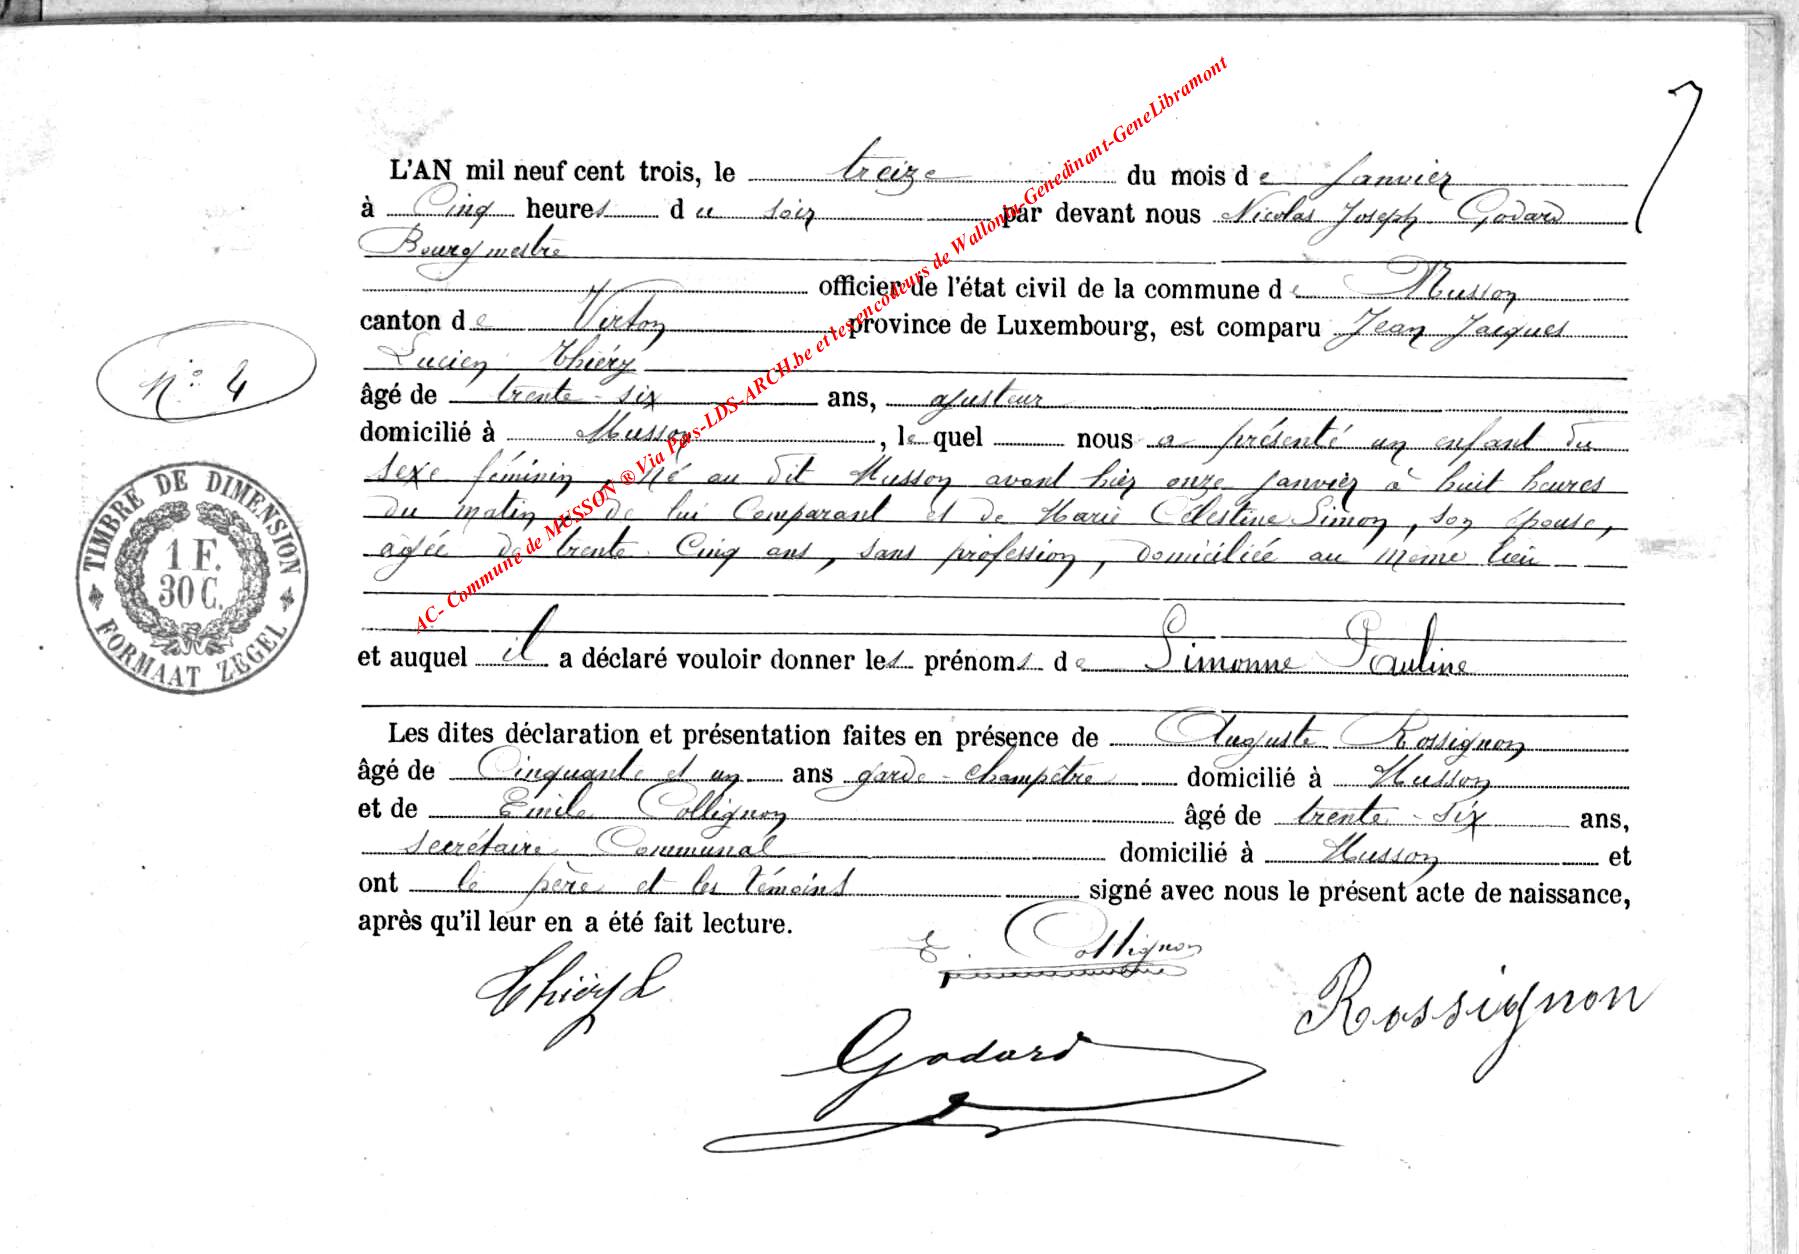 7
L'AN mil neuf cent trois, le treize du mois de Janvier
à Cinq heures du soir par devant nous Nicolas Joseph Godard
Bourgmestre
officier de l'état civil de la commune de Musson
canton de Virton province de Luxembourg, est comparu Jean Jacques
Lucien Thiéry
N° 4
âgé de trente-six ans, ajusteur
domicilié à Musson, lequel nous a présenté un enfant du
sexe féminin, né au dit Musson avant hier onze Janvier à huit heures
du matin, de lui Comparant et de Marie Célestine Simon, son épouse,
agée de trente-Cinq ans, sans profession, domiciliée au même lieu
TIMBRE DE DIMENSION
1 F.
30 C.
FORMAAT ZEGEL
et auquel il a déclaré vouloir donner les prénoms de Simonne Pauline
Les dites déclaration et présentation faites en présence de Auguste Rossignon
âgé de Cinquante et un ans garde-champêtre domicilié à Musson
et de Emile Collignon âgé de trente-six ans,
secrétaire Communal domicilié à Musson et
ont le père et les témoins signé avec nous le présent acte de naissance,
après qu'il leur en a été fait lecture.
E. Collignon
Thiéry L
Rossignon
Godard
AC- Commune de MUSSON ® Via Pers-LDS-ARCH.be et les encodeurs de Wallonin-Genedinant-GeneLibramont